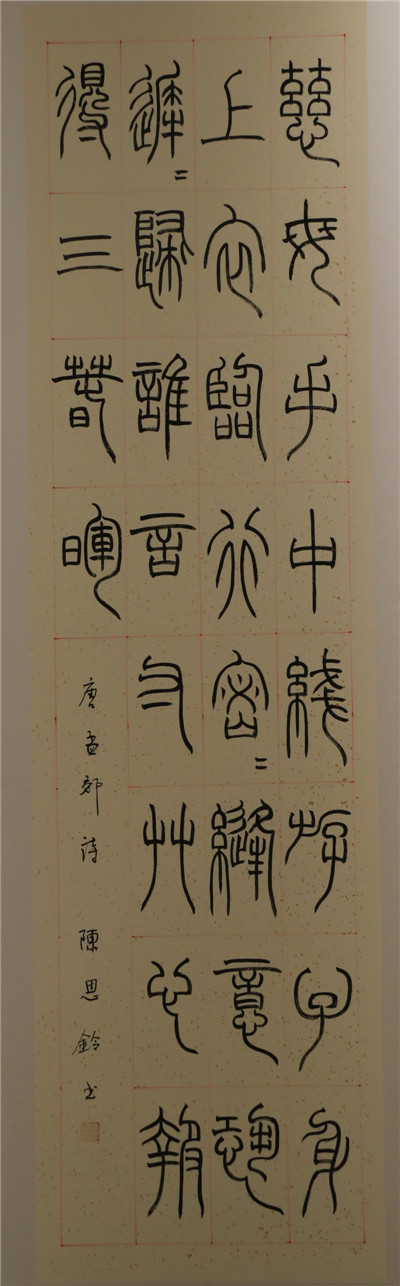 慈母手中綫斿子身
上衣臨行密〻縫意恐
遲〻歸誰言寸艸心報
得三春暉
唐孟郊詩 陳思鈴书